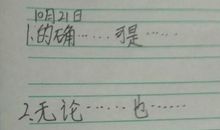 10月21日
1.的确……可是……
2.无论……也……